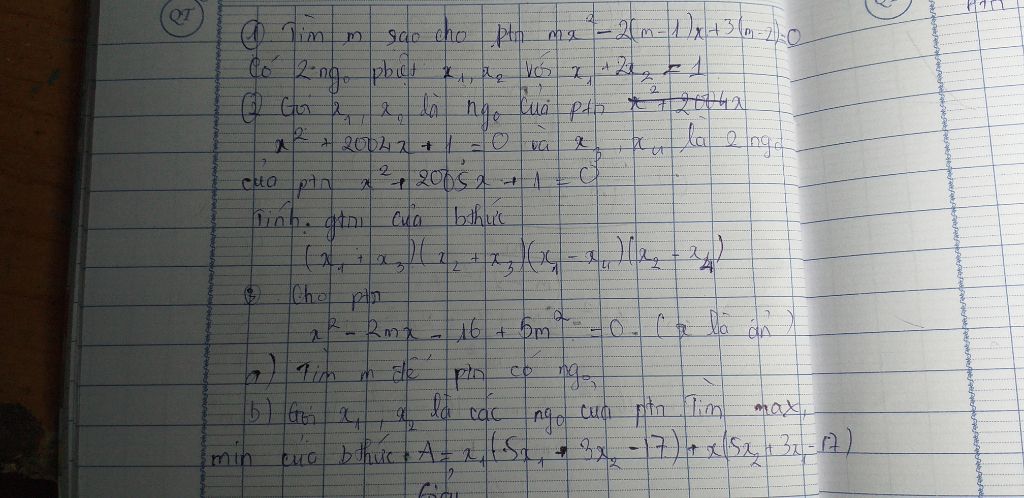 QT
① Tìm m sao cho ptn mx² - 2(m-1)x + 3(m-2)=0
Có 2 ngo phbiệt x₁, x₂ với x₁ + 2x₂ = 1
② Gọi x₁, x₂ là ngo của ptn x² + 2004x
x² + 2004x + 1 = 0 và x₃, x₄ là 2 ngo
của ptn x² + 2005x + 1 = 0
Tính gtrị của bthức
(x₁ + x₃)(x₂ + x₃)(x₁ - x₄)(x₂ - x₄)
③ Cho ptn
x² - 2mx - 16 + 5m² = 0. (x là ẩn)
a) Tìm m để ptn có ngo
b) Gọi x₁, x₂ là các ngo của ptn Tìm max,
min của bthức A = x₁(5x₁ + 3x₂ - 17) + x(5x₂ + 3x₁ - 17)